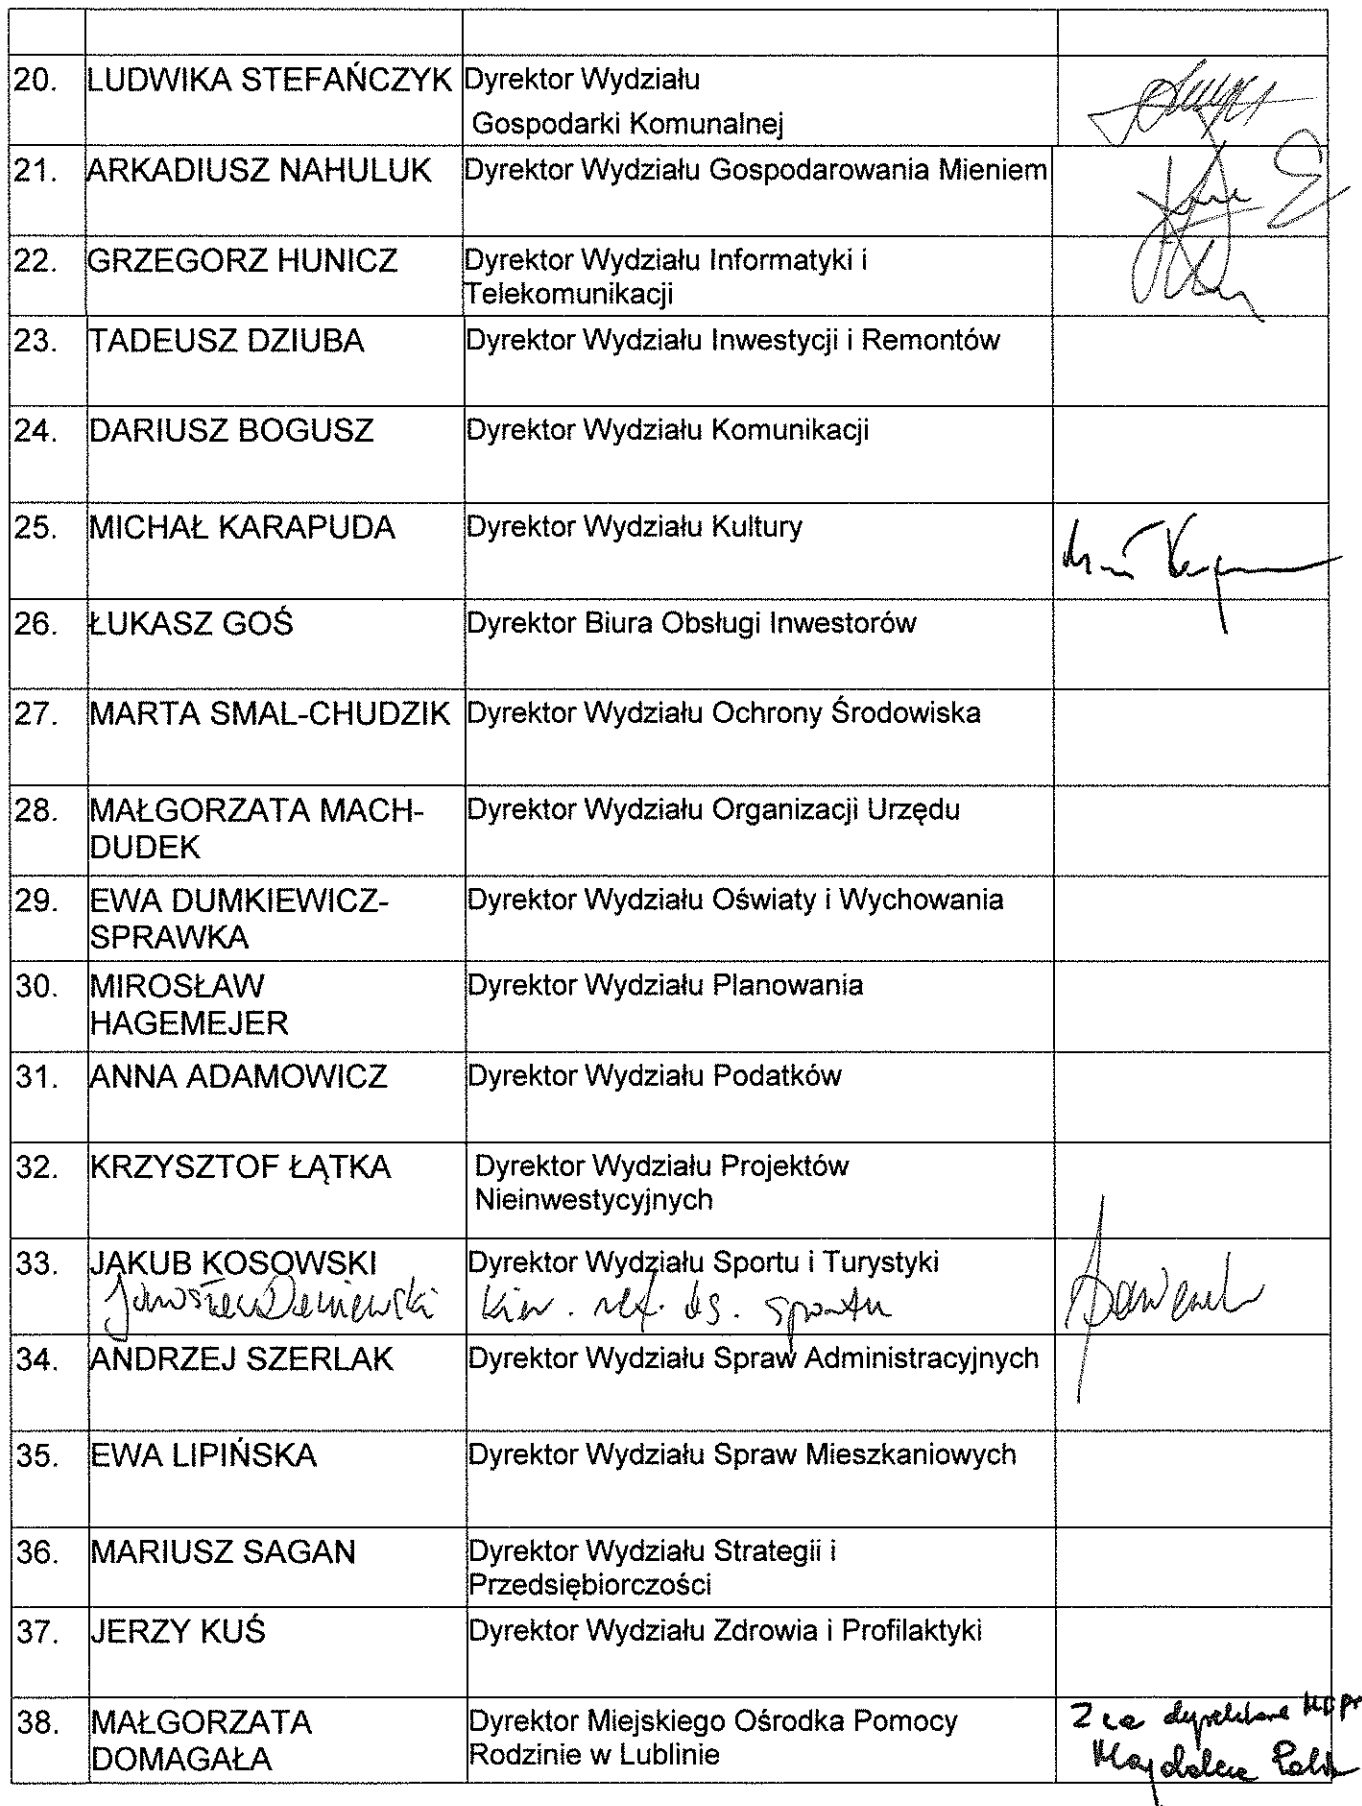 20. LUDWIKA STEFAŃCZYK Dyrektor Wydziału
Gospodarki Komunalnej
21. ARKADIUSZ NAHULUK Dyrektor Wydziału Gospodarowania Mieniem
22. GRZEGORZ HUNICZ Dyrektor Wydziału Informatyki i
Telekomunikacji
23. TADEUSZ DZIUBA Dyrektor Wydziału Inwestycji i Remontów
24. DARIUSZ BOGUSZ Dyrektor Wydziału Komunikacji
25. MICHAŁ KARAPUDA Dyrektor Wydziału Kultury
26. ŁUKASZ GOŚ Dyrektor Biura Obsługi Inwestorów
27. MARTA SMAL-CHUDZIK Dyrektor Wydziału Ochrony Środowiska
28. MAŁGORZATA MACH- Dyrektor Wydziału Organizacji Urzędu
DUDEK
29. EWA DUMKIEWICZ- Dyrektor Wydziału Oświaty i Wychowania
SPRAWKA
30. MIROSŁAW Dyrektor Wydziału Planowania
HAGEMEJER
31. ANNA ADAMOWICZ Dyrektor Wydziału Podatków
32. KRZYSZTOF ŁĄTKA Dyrektor Wydziału Projektów
Nieinwestycyjnych
33. JAKUB KOSOWSKI Dyrektor Wydziału Sportu i Turystyki
kier. ref. ds. sportu
34. ANDRZEJ SZERLAK Dyrektor Wydziału Spraw Administracyjnych
35. EWA LIPIŃSKA Dyrektor Wydziału Spraw Mieszkaniowych
36. MARIUSZ SAGAN Dyrektor Wydziału Strategii i
Przedsiębiorczości
37. JERZY KUŚ Dyrektor Wydziału Zdrowia i Profilaktyki
38. MAŁGORZATA Dyrektor Miejskiego Ośrodka Pomocy Z-ca dyrektora MOPR
DOMAGAŁA Rodzinie w Lublinie Magdalena